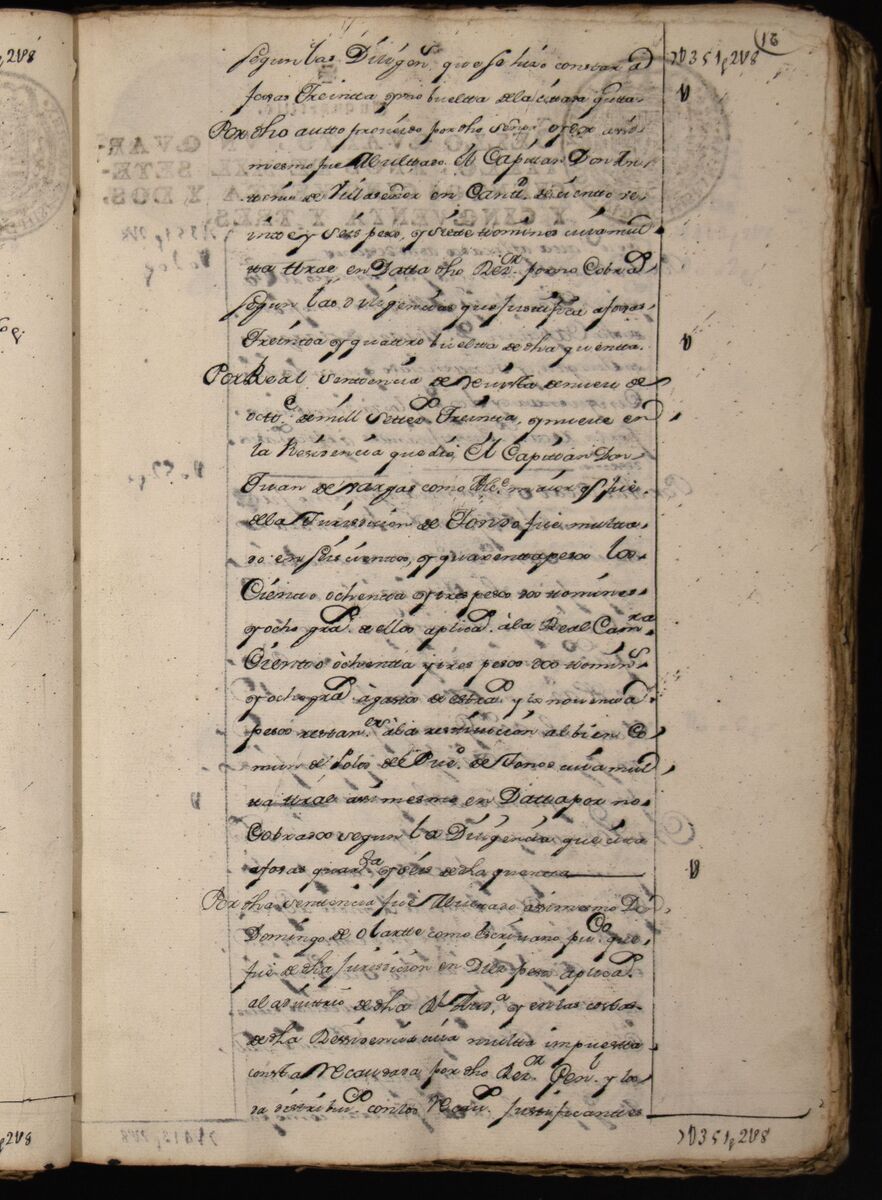 segun las Diligen.s que se hizo constar a
fojas Treinta y no buelta de la citada q.tta
Por dho autto proveido por dho Señor oydor assi
mesmo fue Multtado El Capitan Don An
de Villaseñor en Cant.d de ciento ve
inte y seis pesos, y siete tomines cuia mul
ta ttrae en Datta dho Rez.or por no Cobrad
segun las diligencias que justifica a fojas
Treinta y quattro buelta de dha quentta.
Por Real sentencia de Revista de nueve de
octt.e de mill settec.s Treinta, y nueve en
la Residencia que dió, El Capitan Don
Juan de Vargas como Alc.e maior q fue
de la Jurisdicion de Tondo fue multta
do en seiscientos, y quarentta pesos los
Ciento ochenta y tres pesos dos tomines
y ocho gra.s de ellos aplicad. à la Real Cam.ra
Ciento ochentta y tres pesos dos tomin.s
y ocho gra.s à gastos de estrad. y los
pesos restan.es à la restitucion al bien Co
mun de los del Pue.o de Tondo cuia mul
ta ttrae assi mesmo en Datta por no
Cobrados segun la Diligencia que cita
a fojas quaren.ta y seis de dha quentta
Por dha sentencia fue Multtado assimesmo Dn
Domingo de olartte como Escrivano pu.co que
fue de dha Jurisdicion en Diez pesos aplicad.
al advitrio de dha R.l Aud.a y en las costas
de dha Residencia cuia multta impuestta
consta Recaudada por dho Rez.or Gen.l y los
da distribui.dos con los Recau.dos justificantes
)U351,2U8
)U351,2U8